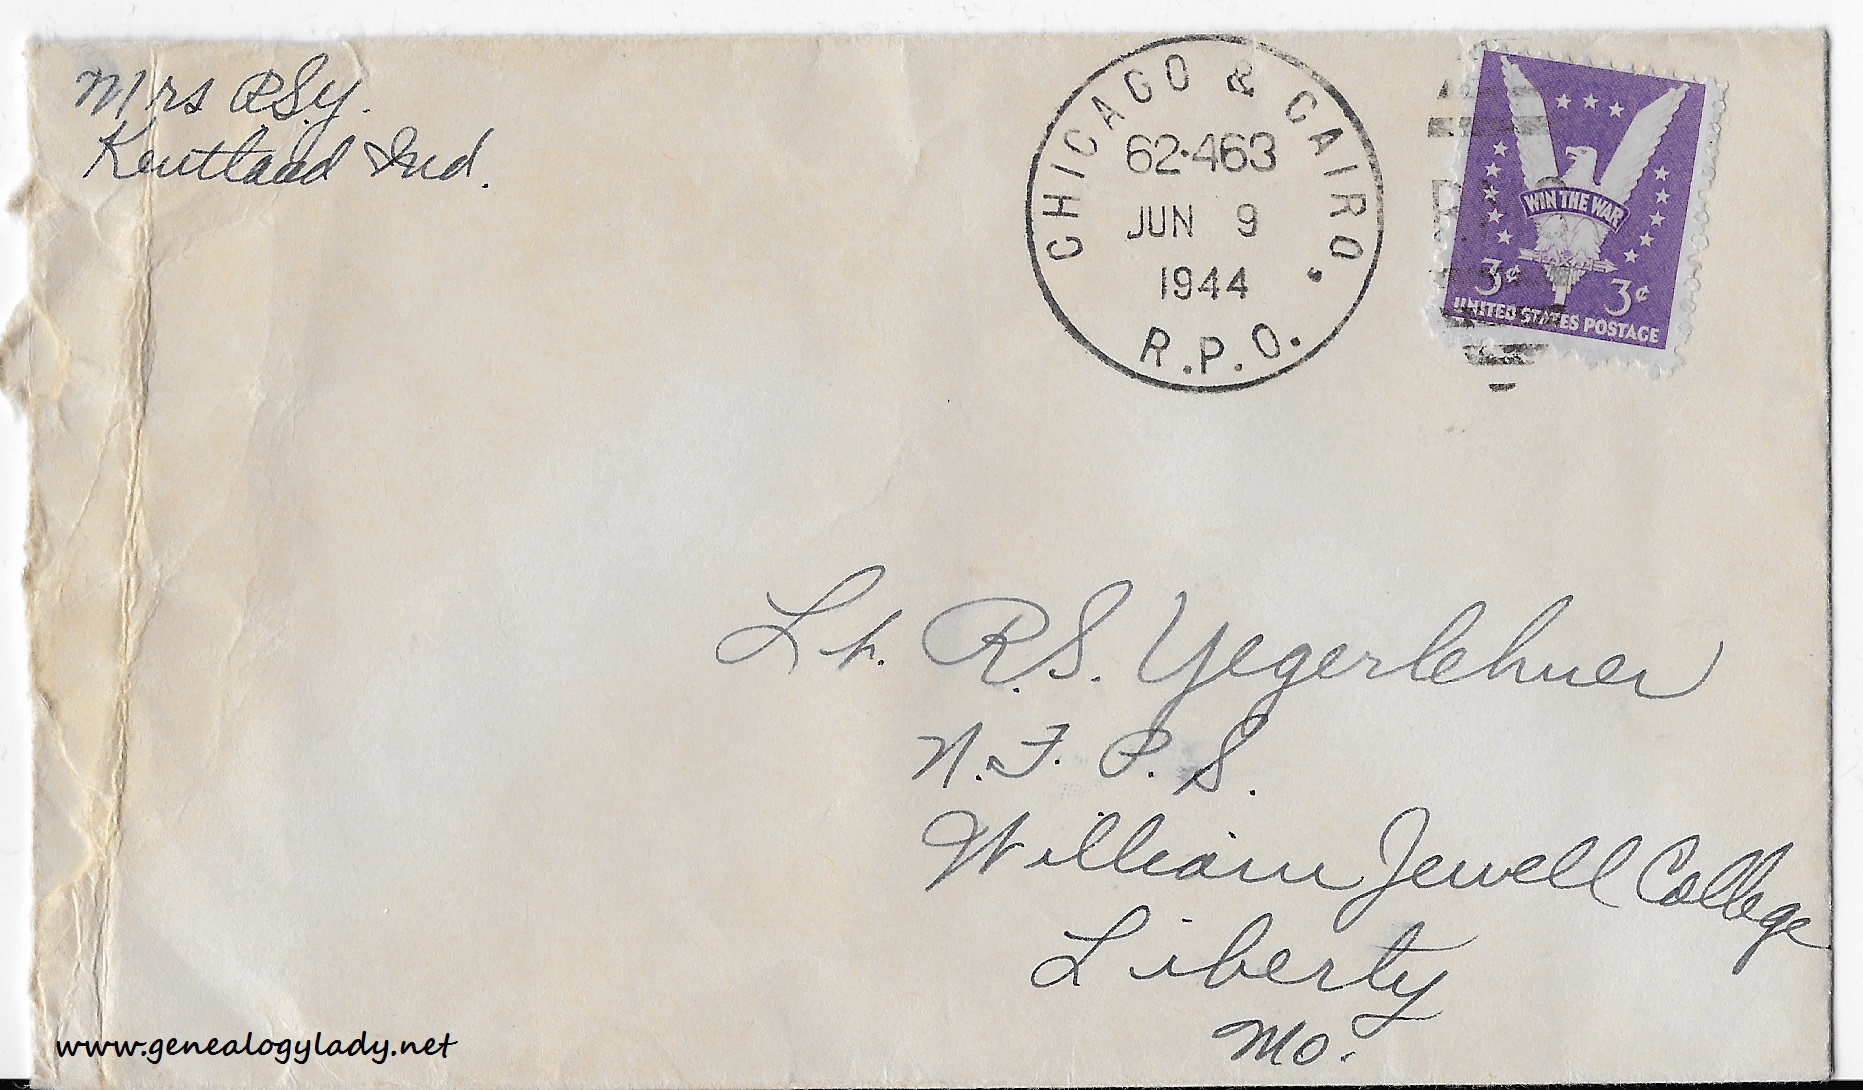 Mrs RSY.
Kentland Ind.
CHICAGO & CAIRO.
62·463
JUN 9
1944
R.P.O.
WIN THE WAR
3¢ 3¢
UNITED STATES POSTAGE
Lt. R.S. Yegerlehner
N.F.P.S.
William Jewell College
Liberty
Mo.
www.genealogylady.net